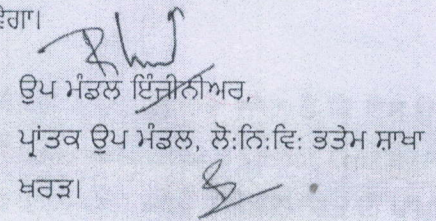 ਵੇਗਾ।
ਉਪ ਮੰਡਲ ਇੰਜੀਨੀਅਰ,
ਪ੍ਰਾਂਤਕ ਉਪ ਮੰਡਲ, ਲੋ:ਨਿ:ਵਿ: ਭਤੇਮ ਸ਼ਾਖਾ
ਖਰੜ।